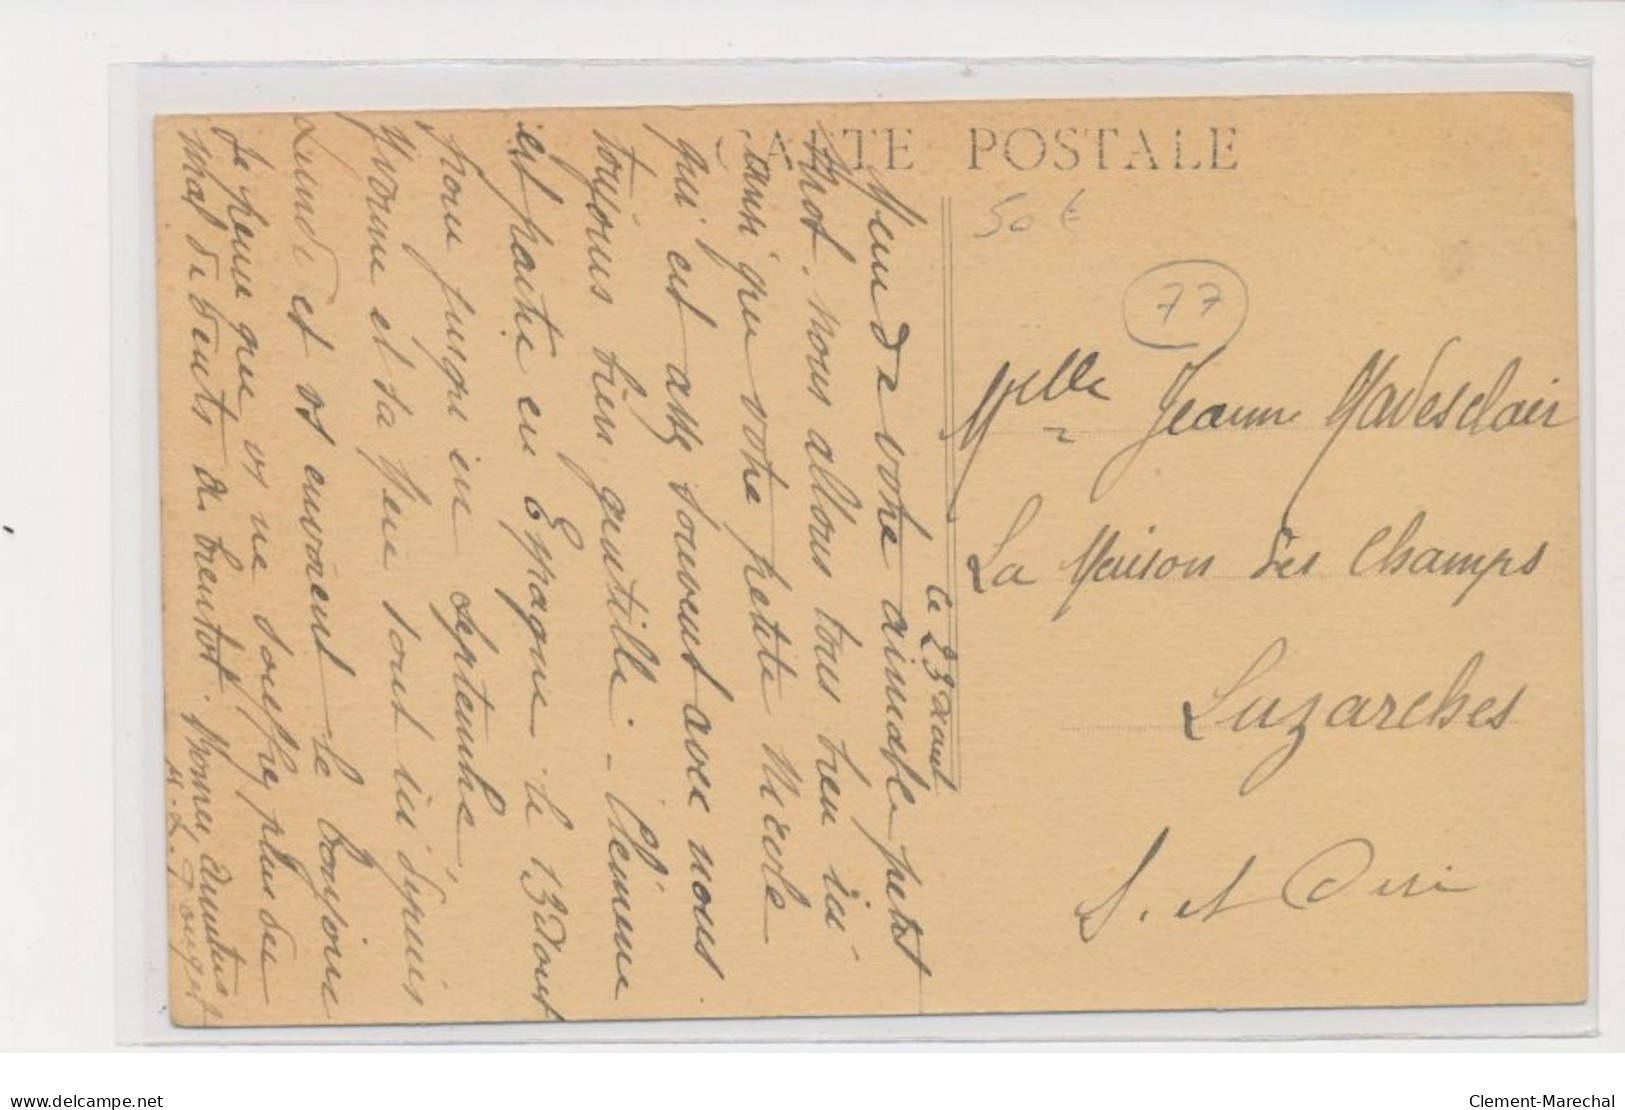 CARTE POSTALE
50 €
77
Le 23 aout
Merci de votre aimable petit
mot. nous allons tous bien ici
ainsi que votre petite Nicole
qui est assez souvent avec nous.
toujours bien gentille. - Clémence
est partie en Espagne le 13 aout
pour jusqu'en septembre,
Yvonne et sa fille sont ici depuis
Lundi et vs envoient le bonjour
Je pense que vs ne souffrez plus du
mal de dents a bientot. Bonnes Amitiés
Mlle Jeanne
La Maison des Champs
Luzarches
S. et Oise
delcampe.net
Clement-Marechal